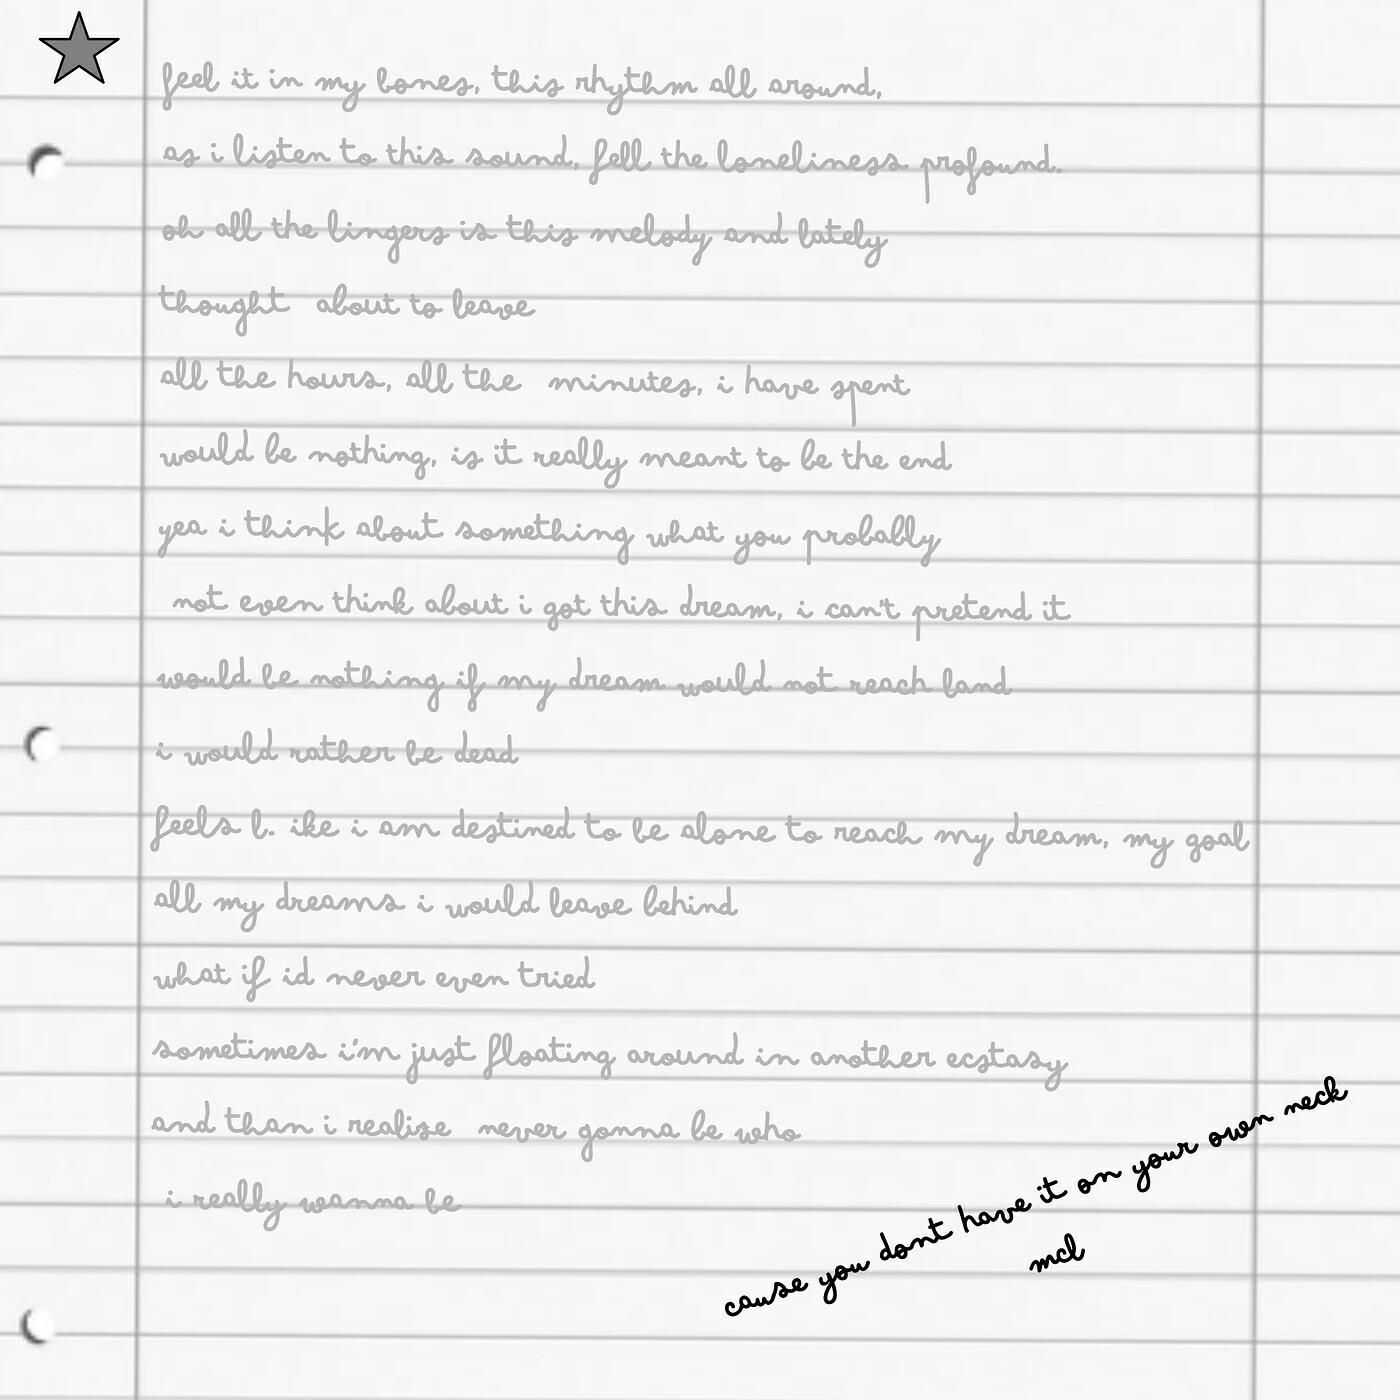 feel it in my bones, this rhythm all around,
as i listen to this sound, fell the loneliness profound.
oh all the lingers is this melody and lately
thought about to leave
all the hours, all the minutes, i have spent
would be nothing, is it really meant to be the end
yea i think about something what you probably
not even think about i got this dream, i can't pretend it
would be nothing if my dream would not reach land
i would rather be dead
feels l. ike i am destined to be alone to reach my dream, my goal
all my dreams i would leave behind
what if id never even tried
sometimes i'm just floating around in another ecstasy
and than i realise never gonna be who
i really wanna be
cause you dont have it on your own neck
mcl